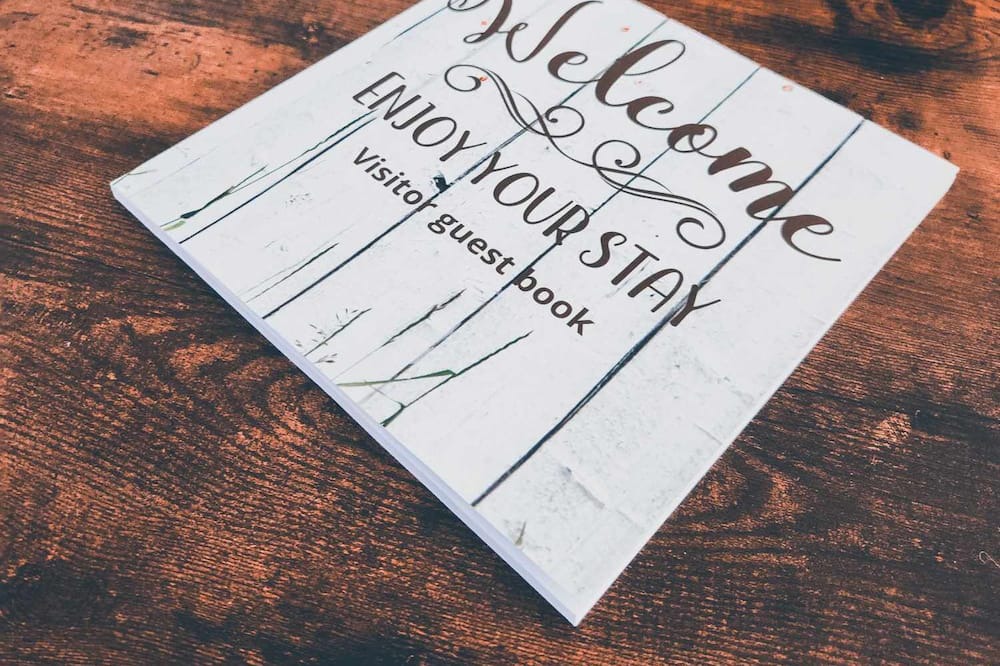 Welcome
ENJOY YOUR STAY
Visitor guest book